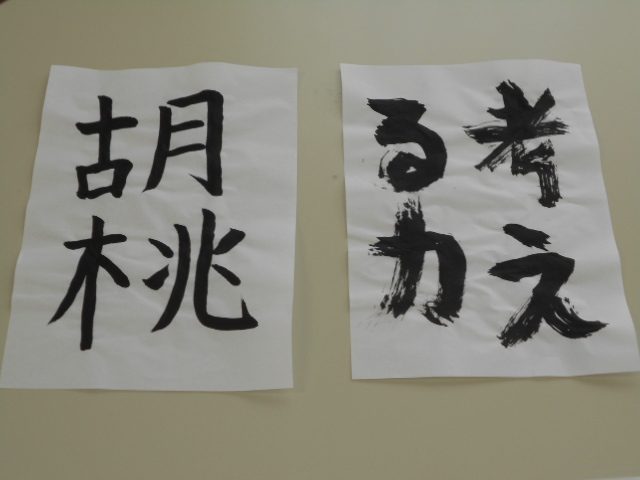 胡
桃
考え
る力